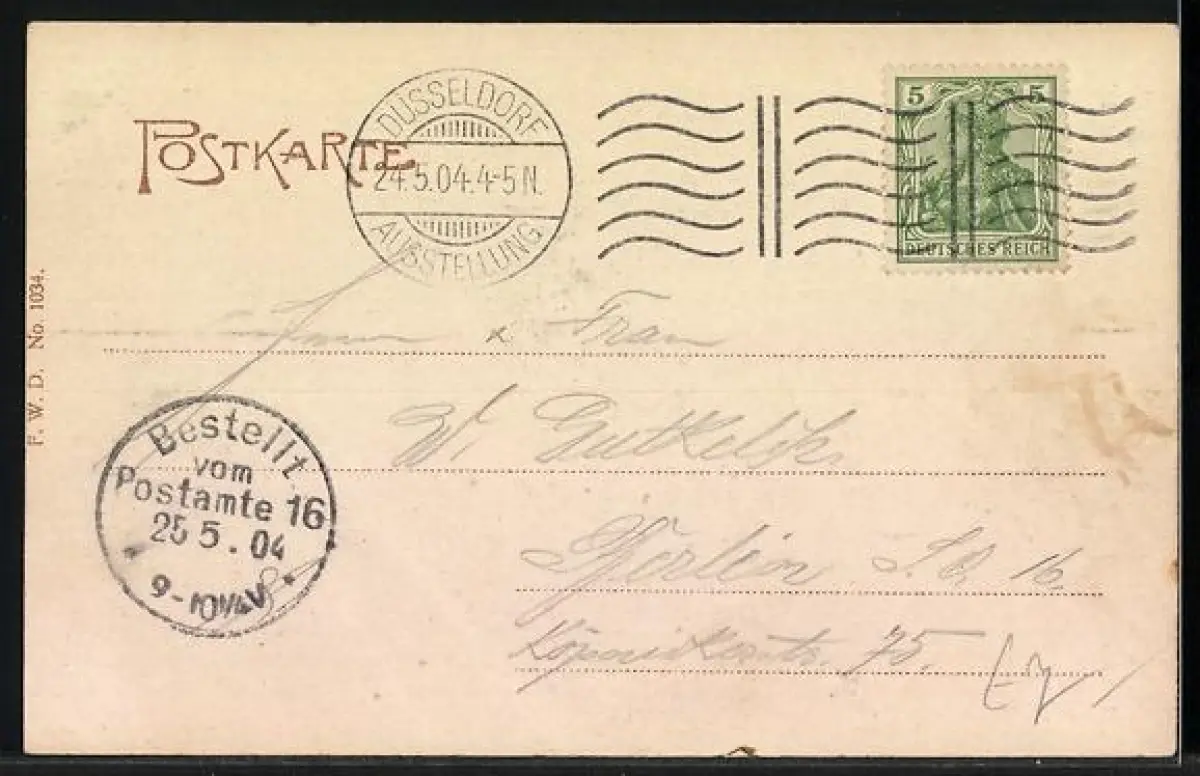 POSTKARTE
DÜSSELDORF
24.5.04.4-5N.
AUSSTELLUNG
5 5
DEUTSCHES REICH
F. W. D. No. 1034.
x Frau
W.
Berlin S.O. 16.
75.
Bestellt
vom
Postamte 16
25 5. 04
9-10¼V.